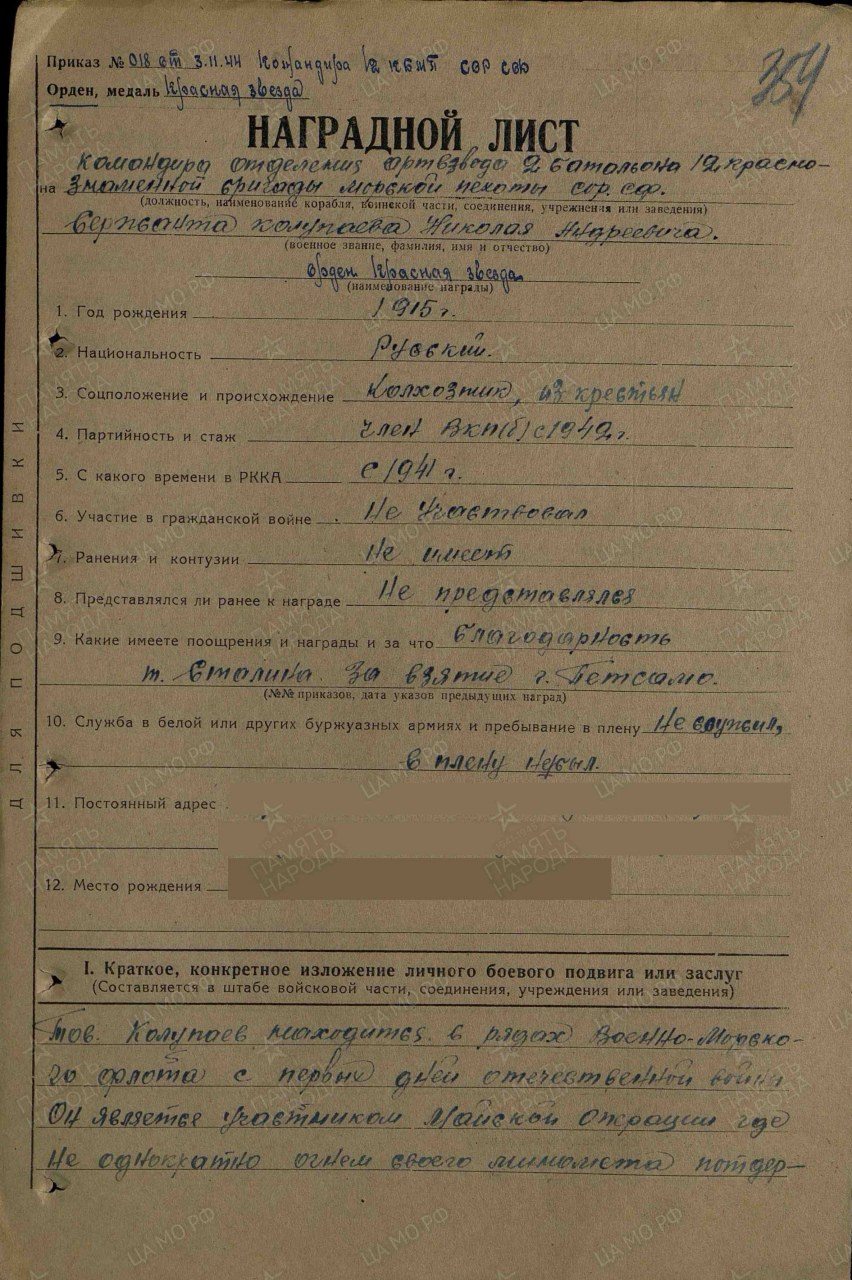 Приказ № 018 от 3.11.44 Командира 12 КБМП СОР СФ
354
Орден, медаль Красная звезда
НАГРАДНОЙ ЛИСТ
Командира отделения артвзвода 2 батальона 12 красно-
на знаменной бригады морской пехоты сор. сф.
(должность, наименование корабля, воинской части, соединения, учреждения или заведения)
Сержанта Колупаева Николая Андреевича.
(военное звание, фамилия, имя и отчество)
орден Красная звезда
(наименование награды)
1. Год рождения 1915 г.
2. Национальность Русский.
3. Соцположение и происхождение Колхозник, из крестьян
4. Партийность и стаж член ВКП(б) с 1942 г.
5. С какого времени в РККА с 1941 г.
6. Участие в гражданской войне Не участвовал
7. Ранения и контузии Не имеет
8. Представлялся ли ранее к награде Не представлялся
9. Какие имеете поощрения и награды и за что Благодарность
т. Сталина за взятие г. Петсамо.
(№№ приказов, дата указов предыдущих наград)
10. Служба в белой или других буржуазных армиях и пребывание в плену Не служил,
в плену небыл.
11. Постоянный адрес
12. Место рождения
I. Краткое, конкретное изложение личного боевого подвига или заслуг
(Составляется в штабе войсковой части, соединения, учреждения или заведения)
Тов. Колупаев находится в рядах Военно-Морско-
го флота с первых дней отечественной войны
Он является участником Майской операции где
не однократно огнем своего миномета потдер-
ДЛЯ ПОДШИВКИ
ПАМЯТЬ НАРОДА
ЦАМО.РФ